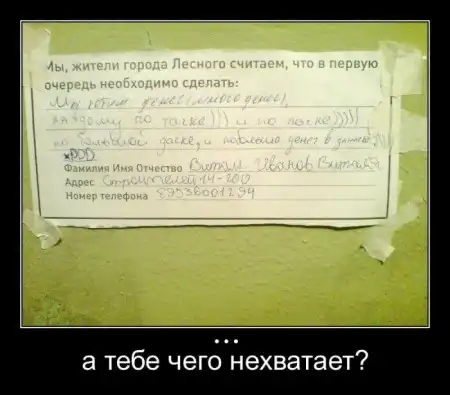 Мы, жители города Лесного считаем, что в первую
очередь необходимо сделать:
Мы хотим денег (много денег),
каждому по тачке))) и по пачке))))
по большой и побольше денег в
xDDD
Фамилия Имя Отчество Виталя Иванов
Адрес Строителей 14-200
Номер телефона 8953600
...
а тебе чего нехватает?